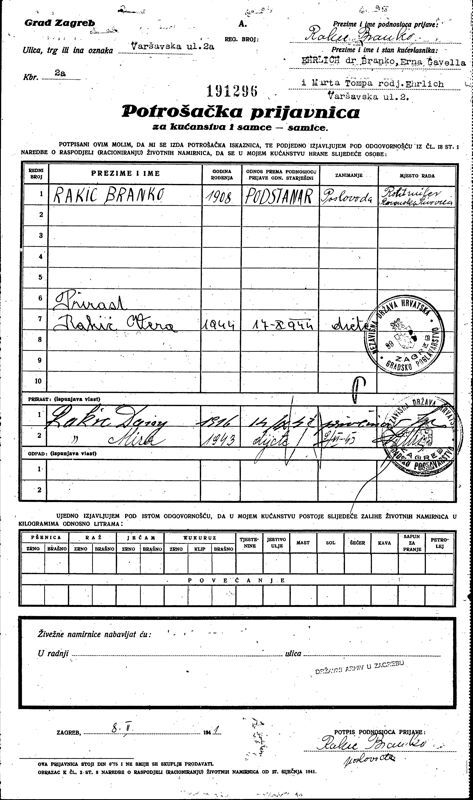 Grad Zagreb
A.
REG. BROJ:
Prezime i ime podnosioca prijave:
Rakić Branko
Ulica, trg ili ina oznaka Varšavska ul.2a
Prezime i ime i stan kućevlasnika:
EHRLICH dr Branko, Erna Čavella
Kbr. 2a
i Marta Tompa rodj. Ehrlich
Varšavska ul.2.
191296
Potrošačka prijavnica
za kućanstva i samce — samice.
POTPISANI OVIM MOLIM, DA MI SE IZDA POTROŠAČKA ISKAZNICA, TE PODJEDNO IZJAVLJUJEM POD ODGOVORNOŠĆU IZ ČL. 18 ST. 1
NAREDBE O RASPODJELI (RACIONIRANJU) ŽIVOTNIH NAMIRNICA, DA SE U MOJEM KUĆANSTVU HRANE SLIJEDEĆE OSOBE:
REDNI BROJ PREZIME I IME GODINA ROĐENJA ODNOS PREMA PODNOSIOCU PRIJAVE ODN. STARJEŠINI ZANIMANJE MJESTO RADA
1 RAKIĆ BRANKO 1908 PODSTANAR Poslovođa
2
3
4
5
6 Prirast
7 Rakić Vera 1944 17-X 944 dijete
8
9
10
NEZAVISNA DRŽAVA HRVATSKA
ZAGREB
GRADSKO POGLAVARSTVO
PRIRAST: (ispunjava vlast)
1 Rakić
2 " Mira 1943 dijete
ODPAD: (ispunjava vlast)
1
2
UJEDNO IZJAVLJUJEM POD ISTOM ODGOVORNOŠĆU, DA U MOJEM KUĆANSTVU POSTOJE SLIJEDEĆE ZALIHE ŽIVOTNIH NAMIRNICA U
KILOGRAMIMA ODNOSNO LITRAMA:
PŠENICA RAŽ JEČAM KUKURUZ TJESTENINE JESTIVO ULJE MAST SOL ŠEĆER KAVA SAPUN ZA PRANJE PETROLEJ
ZRNO BRAŠNO ZRNO BRAŠNO ZRNO BRAŠNO ZRNO KLIP BRAŠNO
POVEĆANJE
Živežne namirnice nabavljat ću:
U radnji ulica
DRŽAVNI ARHIV U ZAGREBU
ZAGREB, 8. II. 1941
POTPIS PODNOSIOCA PRIJAVE:
Rakić Branko
poslovođa
OVA PRIJAVNICA STOJI DIN 0'75 I NE SMIJE SE SKUPLJE PRODAVATI.
OBRAZAC K ČL. 2 ST. 2 NAREDBE O RASPODJELI (RACIONIRANJU) ŽIVOTNIH NAMIRNICA OD 27. SIJEČNJA 1941.